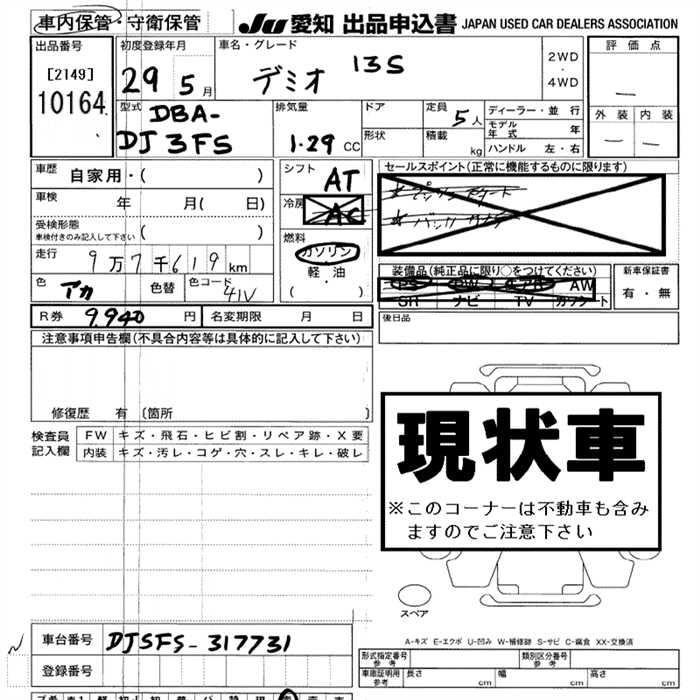 車内保管・守衛保管 JU 愛知 出品申込書 JAPAN USED CAR DEALERS ASSOCIATION
出品番号 初度登録年月 車名・グレード 評価点
[2149] 29 5月 デミオ 13S 2WD・4WD
10164 型式 排気量 ドア 定員 ディーラー・並行 外装 内装
DBA- 5人 モデル年式 年
DJ3FS 1.29 CC 形状 積載 kg ハンドル 左・右
車歴 自家用・( ) シフト AT セールスポイント(正常に機能するものに限ります)
車検 年 月( 日) 冷房 AC
受検形態
車検付きのみ記入して下さい ( ) 燃料 ガソリン
走行 9万7千619km 軽・油 装備品(純正品に限り○をつけてください) 新車保証書
色 アカ 色替 色コード 41V ( ) PS PW エアB AW 有・無
SH ナビ TV カセット
R券 9,940円 名変期限 月 日 後日品
注意事項申告欄(不具合内容等は具体的に記入して下さい)
修復歴 有 〔箇所 〕
検査員 FW キズ・飛石・ヒビ割・リペア跡・X要
記入欄 内装 キズ・汚レ・コゲ・穴・スレ・キレ・破レ
現状車
※このコーナーは不動車も含み
ますのでご注意下さい
スペア
車台番号 DJSFS-317731 A-キズ E-エクボ U-凹み W-補修跡 S-サビ C-腐食 XX-交換済
登録番号 形式指定番号 参考 類別区分番号 参考
車庫証明用 参考 長さ cm 幅 cm 高さ cm